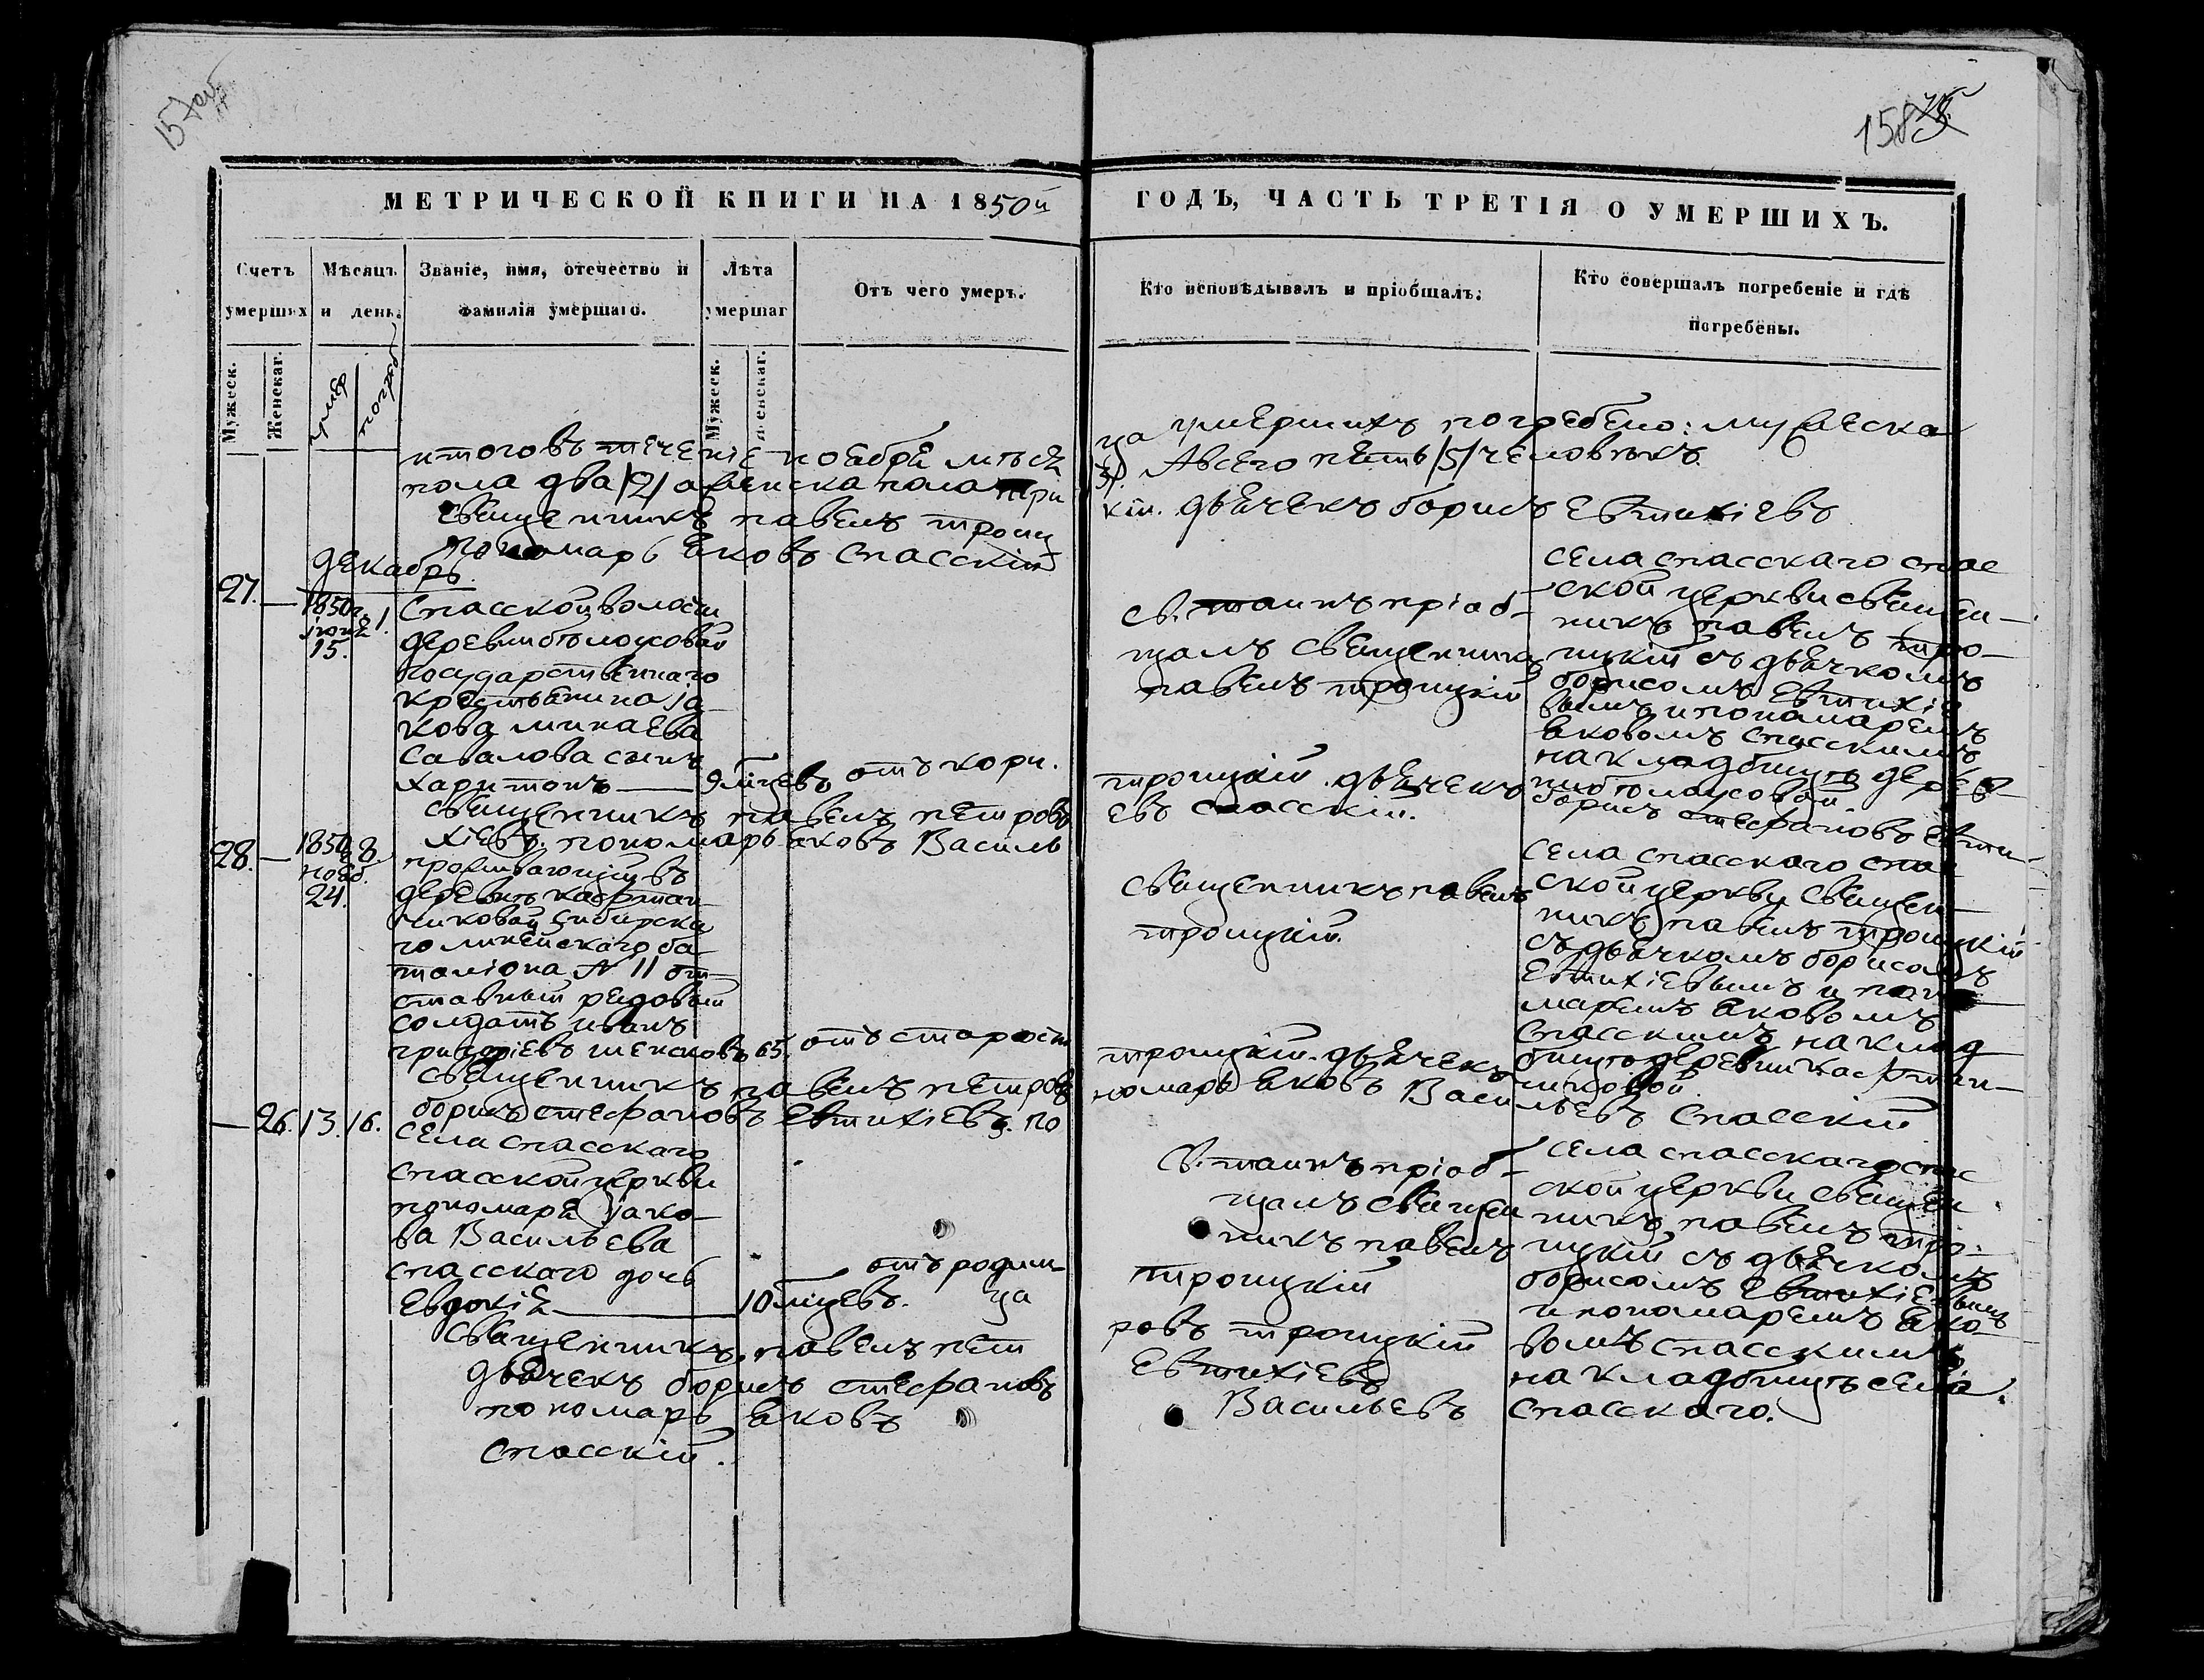 157 об.
158
МЕТРИЧЕСКОЙ КНИГИ НА 1850й ГОДЪ, ЧАСТЬ ТРЕТІЯ О УМЕРШИХЪ.
Счетъ умершихъ
Мѣсяцъ и день.
Званіе, имя, отечество и фамилія умершаго.
Лѣта умершаг
Отъ чего умеръ.
Кто исповѣдывалъ и пріобщалъ.
Кто совершалъ погребеніе и гдѣ погребены.
Мужеск.
Женскаг.
умер
погреб
Мужеск.
Женскаг.
итого въ теченіе ноября мѣся
ца умершихъ погребено: мужеска
пола два /2/ а женска пола три
/3/. А всего пять /5/ человѣкъ.
священникъ павелъ троиц
кій. дьячекъ борисъ Евтихіевъ
пономарь яковъ спасскій
декабрь.
27. —
1850г. іюня 15.
1.
Спасской волости
деревни бѣлоусовой
государственнаго
крестьянина іа
кова минаева
савалова сынъ
харитонъ —
9 мѣцевъ
отъ кори.
св. таинъ пріоб-
щалъ священникъ
павелъ троицкій
села спасскаго спас
ской церкви священ-
никъ павелъ тро-
ицкій съ дьячкомъ
борисомъ Евтихіе
вымъ и пономаремъ
яковомъ спасскимъ
на кладбищѣ дерев
ни бѣлоусовой.
священникъ павелъ петровъ
троицкій. дьячекъ борисъ стефановъ Евти-
хіевъ. пономарь яковъ Василь
евъ спасскій.
28. —
1850 нояб. 24.
8.
проживающій въ
деревнѣ кафтан
чиковой Сибирска
го линейскаго ба
таліона № 11 от-
ставный редовый
солдатъ иванъ
григоріевъ шенсковъ
65.
отъ старости
священникъ павелъ
троицкій.
села спасскаго спас
ской церкви священ-
никъ павелъ троицкій
съ дьячкомъ борисомъ
Евтихіевымъ и поно
маремъ яковомъ
спасскимъ на клад
бищѣ деревни кафтан-
чиковой.
священникъ павелъ петровъ
троицкій. дьячекъ
борисъ стефановъ Евтихіевъ. по
номарь яковъ Васильевъ спасскій
— 26. 13. 16.
села спасскаго
спасской церкви
пономаря іако-
ва Васильева
спасскаго дочь
Евдокія —
10 мѣцевъ.
отъ родим-
ца
св. таинъ пріоб-
щалъ священ
никъ павелъ
троицкій
села спасскаго спас
ской церкви священ
никъ павелъ тро-
ицкій съ дьячкомъ
борисомъ Евтихіевымъ
и пономаремъ яко-
вомъ спасскимъ
на кладбищѣ села
спасскаго.
священникъ павелъ пет
ровъ троицкій
дьячекъ борисъ стефановъ
Евтихіевъ
пономарь яковъ
Васильевъ
спасскій.